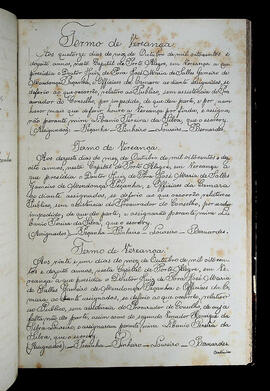 Termo de Vereança.
Aos quatorze dias do mez de Outubro de mil oitocentos e
dezoito annos, nesta Capital de Porto Alegre, em Vereança a que
presidia o Doutor Juiz de Fora José Maria de Salles Gameiro de
Mendonça Peçanha, e Officiaes da Camara ao diante assignados, se
deferio ao que occorrêo, relativo ao Publico, sem assistencia do Pro-
curador do Conselho, por impedido, de que dou parte, e, por nam
haver mais que deferir houve a Vereança por finda, e assigna-
rão perante mim Albano Pereira da Silva, que o escrevy
(Assignados) Peçanha - Pinheiro - Loureiro - Bernardes.
Termo de Vereança.
Aos dezoito dias do mez de Outubro de mil oitocentos e de-
zoito annos, nesta Capital de Porto Alegre, em Vereança a
que presidia o Doutor Juiz de Fora José Maria de Salles
Gameiro de Mendonça Peçanha, e Officiaes da Camara
ao diante assignados, se deferio ao que occorrêo, relativo ao
Publico, sem assistencia do Procurador do Conselho, por
impedido, de que dou parte, e assignarão perante mim Al-
bano Pereira da Silva, que o escrevy
(Assignados) Peçanha - Pinheiro - Loureiro - Bernardes.
Termo de Vereança.
Aos vinte e um dias do mez de Outubro de mil oito cen-
tos e dezoito annos, nesta Capital de Porto Alegre, em Ve-
reança a que presidia o Doutor Juiz de Fora José Maria
de Salles Gameiro de Mendonça Peçanha e Officiaes da Ca-
mara ao diante assignados, se deferio ao que occorrêo, relativo
ao Publico, sem assistencia do Procurador do Conselho, de cuja
falta não dá parte, assim como do segundo Vereador
Silva e assignarão perante mim Albano Pereira da
Silva, que o escrevy
(Assignados) Peçanha - Pinheiro - Loureiro - Bernardes